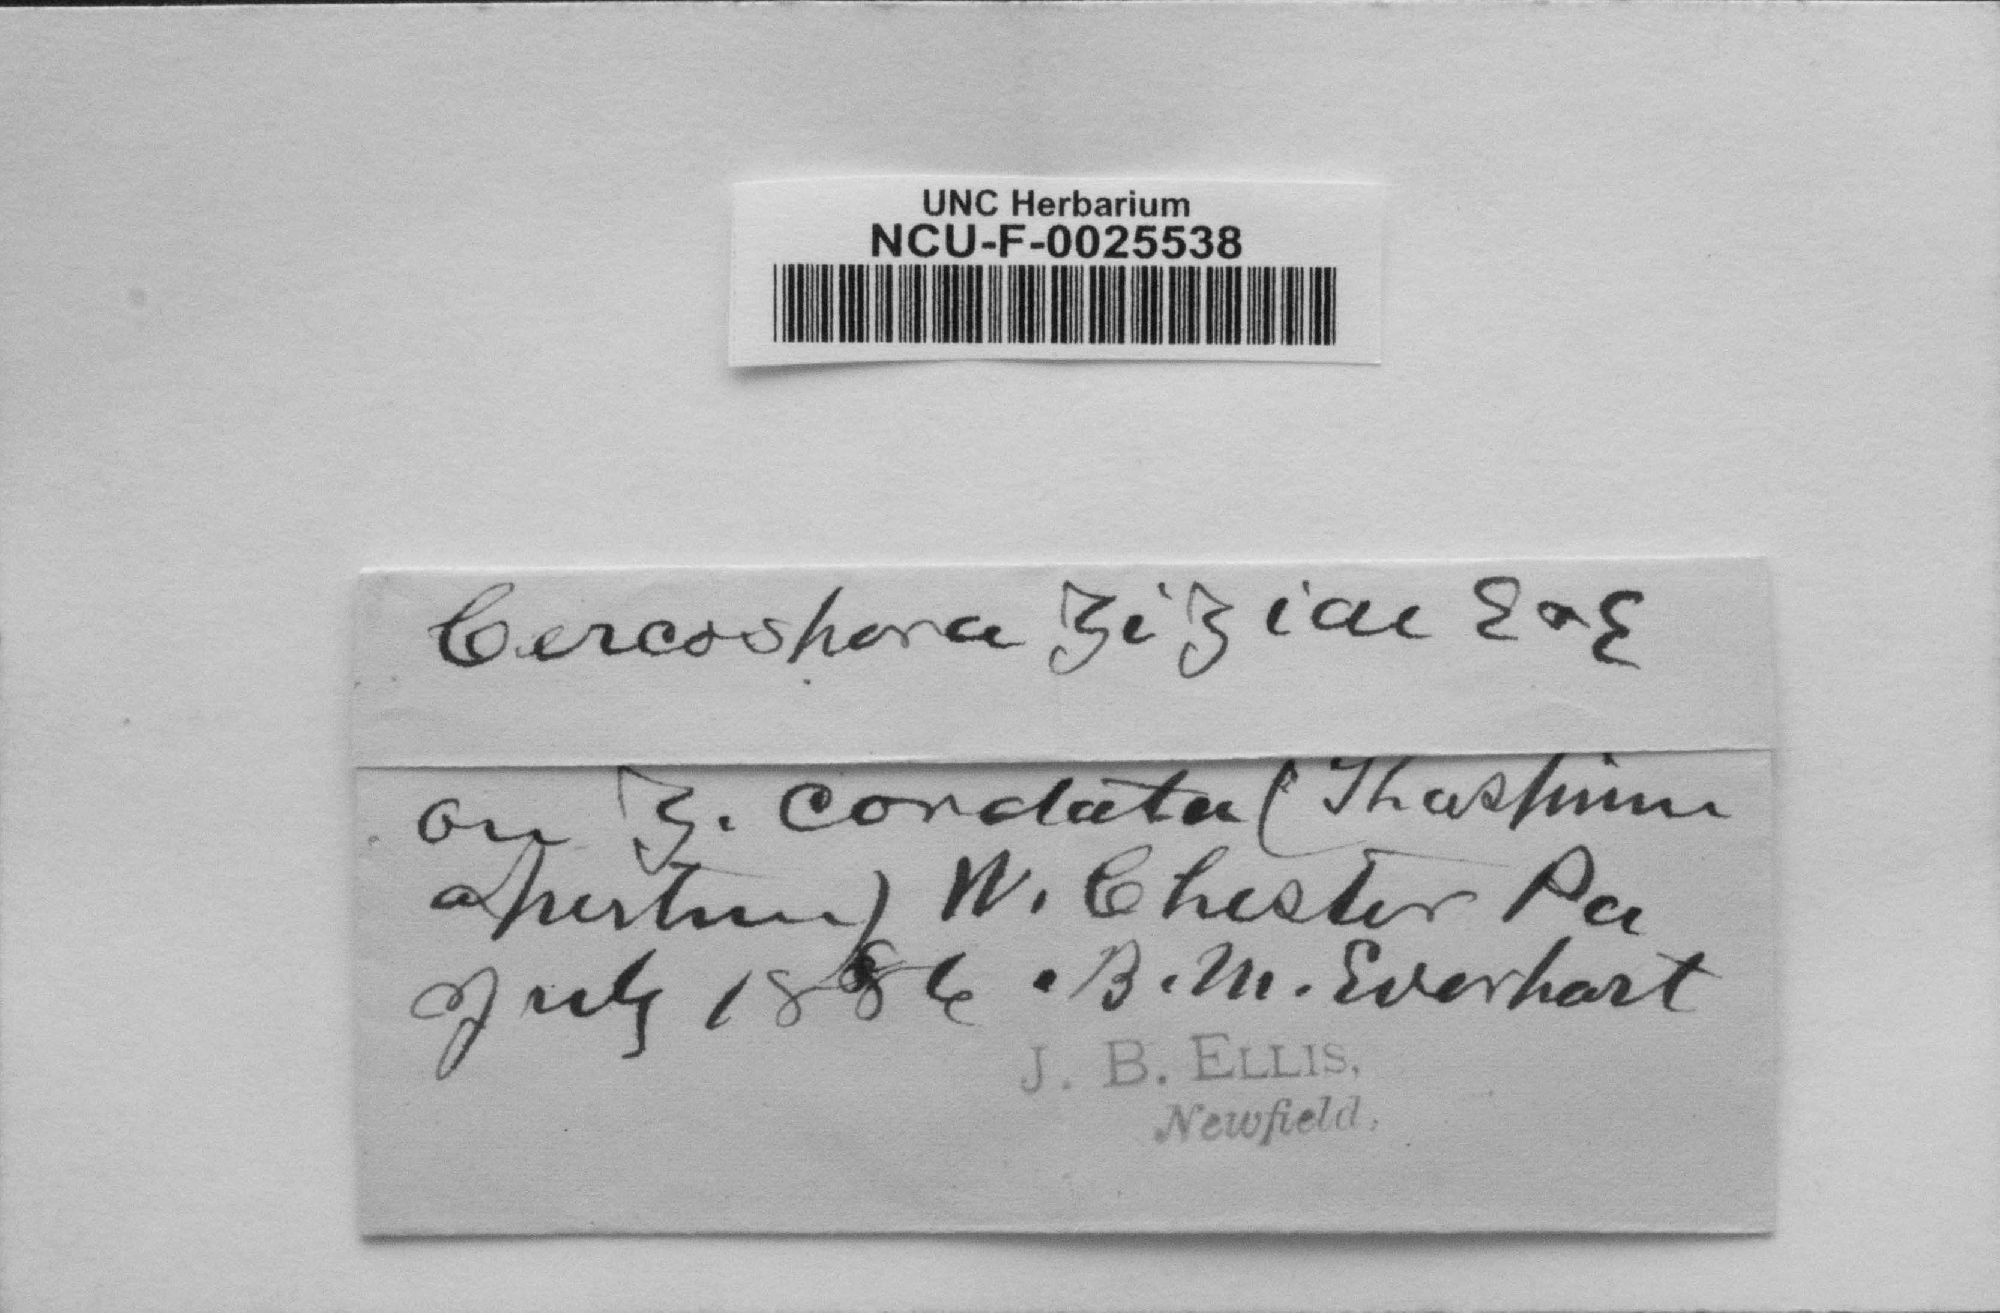 UNC Herbarium
NCU-F-0025538
Cercospora Ziziae E & E
on Z. cordata (Thaspium
apertum) W. Chester Pa
July 1886 . B. M. Everhart
J. B. ELLIS,
Newfield.